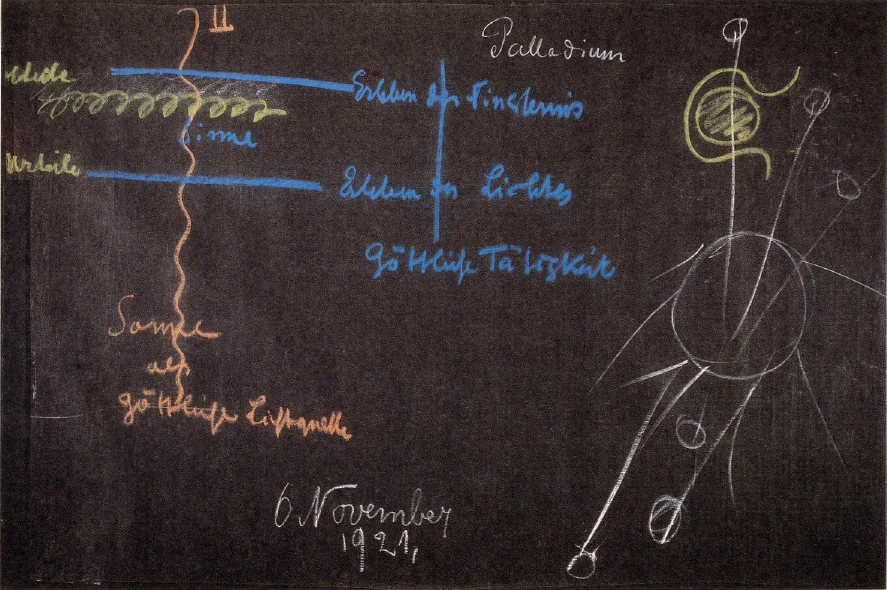 II
Palladium
Erleben der Finsternis
Sinne
Erleben des Lichtes
Göttliche Tätigkeit
Sonne
als
göttliche Lichtquelle
6 November
1921,